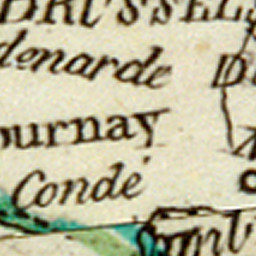 BRUSSELS
denarde
ournay
Condé